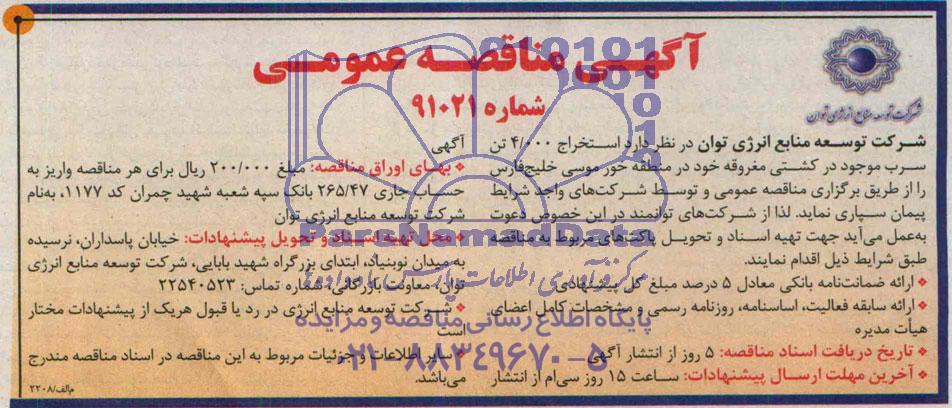 آگهی مناقصه عمومی
شماره ۹۱۰۲۱
شرکت توسعه منابع انرژی توان
شرکت توسعه منابع انرژی توان در نظر دارد استخراج ۴/۰۰۰ تن
سرب موجود در کشتی مغروقه خود در منطقه خور موسی خلیج‌فارس
را از طریق برگزاری مناقصه عمومی و توسط شرکت‌های واجد شرایط
پیمان سپاری نماید. لذا از شرکت‌های توانمند در این خصوص دعوت
به‌عمل می‌آید جهت تهیه اسناد و تحویل پاکت‌های مربوط به مناقصه
طبق شرایط ذیل اقدام نمایند.
ارائه ضمانت‌نامه بانکی معادل ۵ درصد مبلغ کل پیشنهادی
ارائه سابقه فعالیت، اساسنامه، روزنامه رسمی و مشخصات کامل اعضای
هیأت مدیره
تاریخ دریافت اسناد مناقصه: ۵ روز از انتشار آگهی
آخرین مهلت ارسال پیشنهادات: ساعت ۱۵ روز سی‌ام از انتشار
آگهی
بهای اوراق مناقصه: مبلغ ۲۰۰/۰۰۰ ریال برای هر مناقصه واریز به
حساب جاری ۲۶۵/۴۷ بانک سپه شعبه شهید چمران کد ۱۱۷۷، به‌نام
شرکت توسعه منابع انرژی توان
محل تهیه اسناد و تحویل پیشنهادات: خیابان پاسداران، نرسیده
به میدان نوبنیاد، ابتدای بزرگراه شهید بابایی، شرکت توسعه منابع انرژی
توان، معاونت بازرگانی، شماره تماس: ۲۲۵۴۰۵۲۳
شرکت توسعه منابع انرژی در رد یا قبول هریک از پیشنهادات مختار
است
سایر اطلاعات و جزئیات مربوط به این مناقصه در اسناد مناقصه مندرج
می‌باشد.
م‌الف/۲۲۰۸
ParsNamadData
مرکز فرآوری اطلاعات پارس نماد داده‌ها
پایگاه اطلاع رسانی مناقصه و مزایده
۰۲۱-۸۸۳۴۹۶۷۰-۵